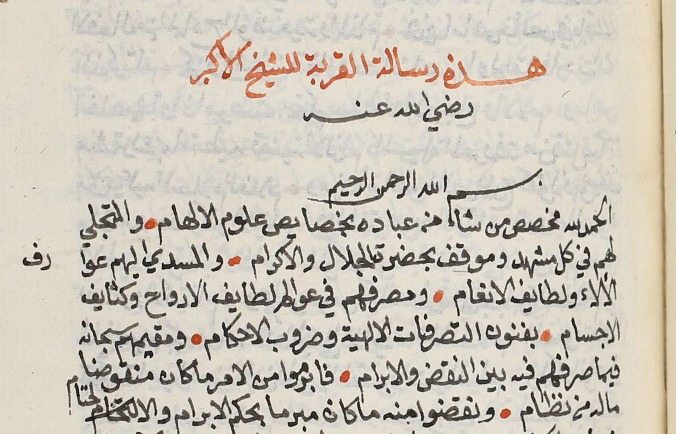 هذه رسالة القربة للشيخ الأكبر
رضي الله عنه
بسم الله الرحمن الرحيم
الحمد لله مخصص من شاء من عباده بخصايص علوم الالهام • والمتجلي
لهم في كل مشهد وموقف بحضرة الجلال والاكرام • والمسدي اليهم عوا
رف
الآلاء ولطايف الانعام • ومصرفهم في عوالم لطايف الارواح وكثايف
الاجسام • بفنون التصرفات الالهية وضروب الاحكام • ومقيمهم سبحانه
فيما صرفهم فيه بين النقض والابرام • فابرموا من الامر ما كان منقوضا
ماله من نظام • ونقضوا منه ما كان مبرما بحكم الابرام والالتحام